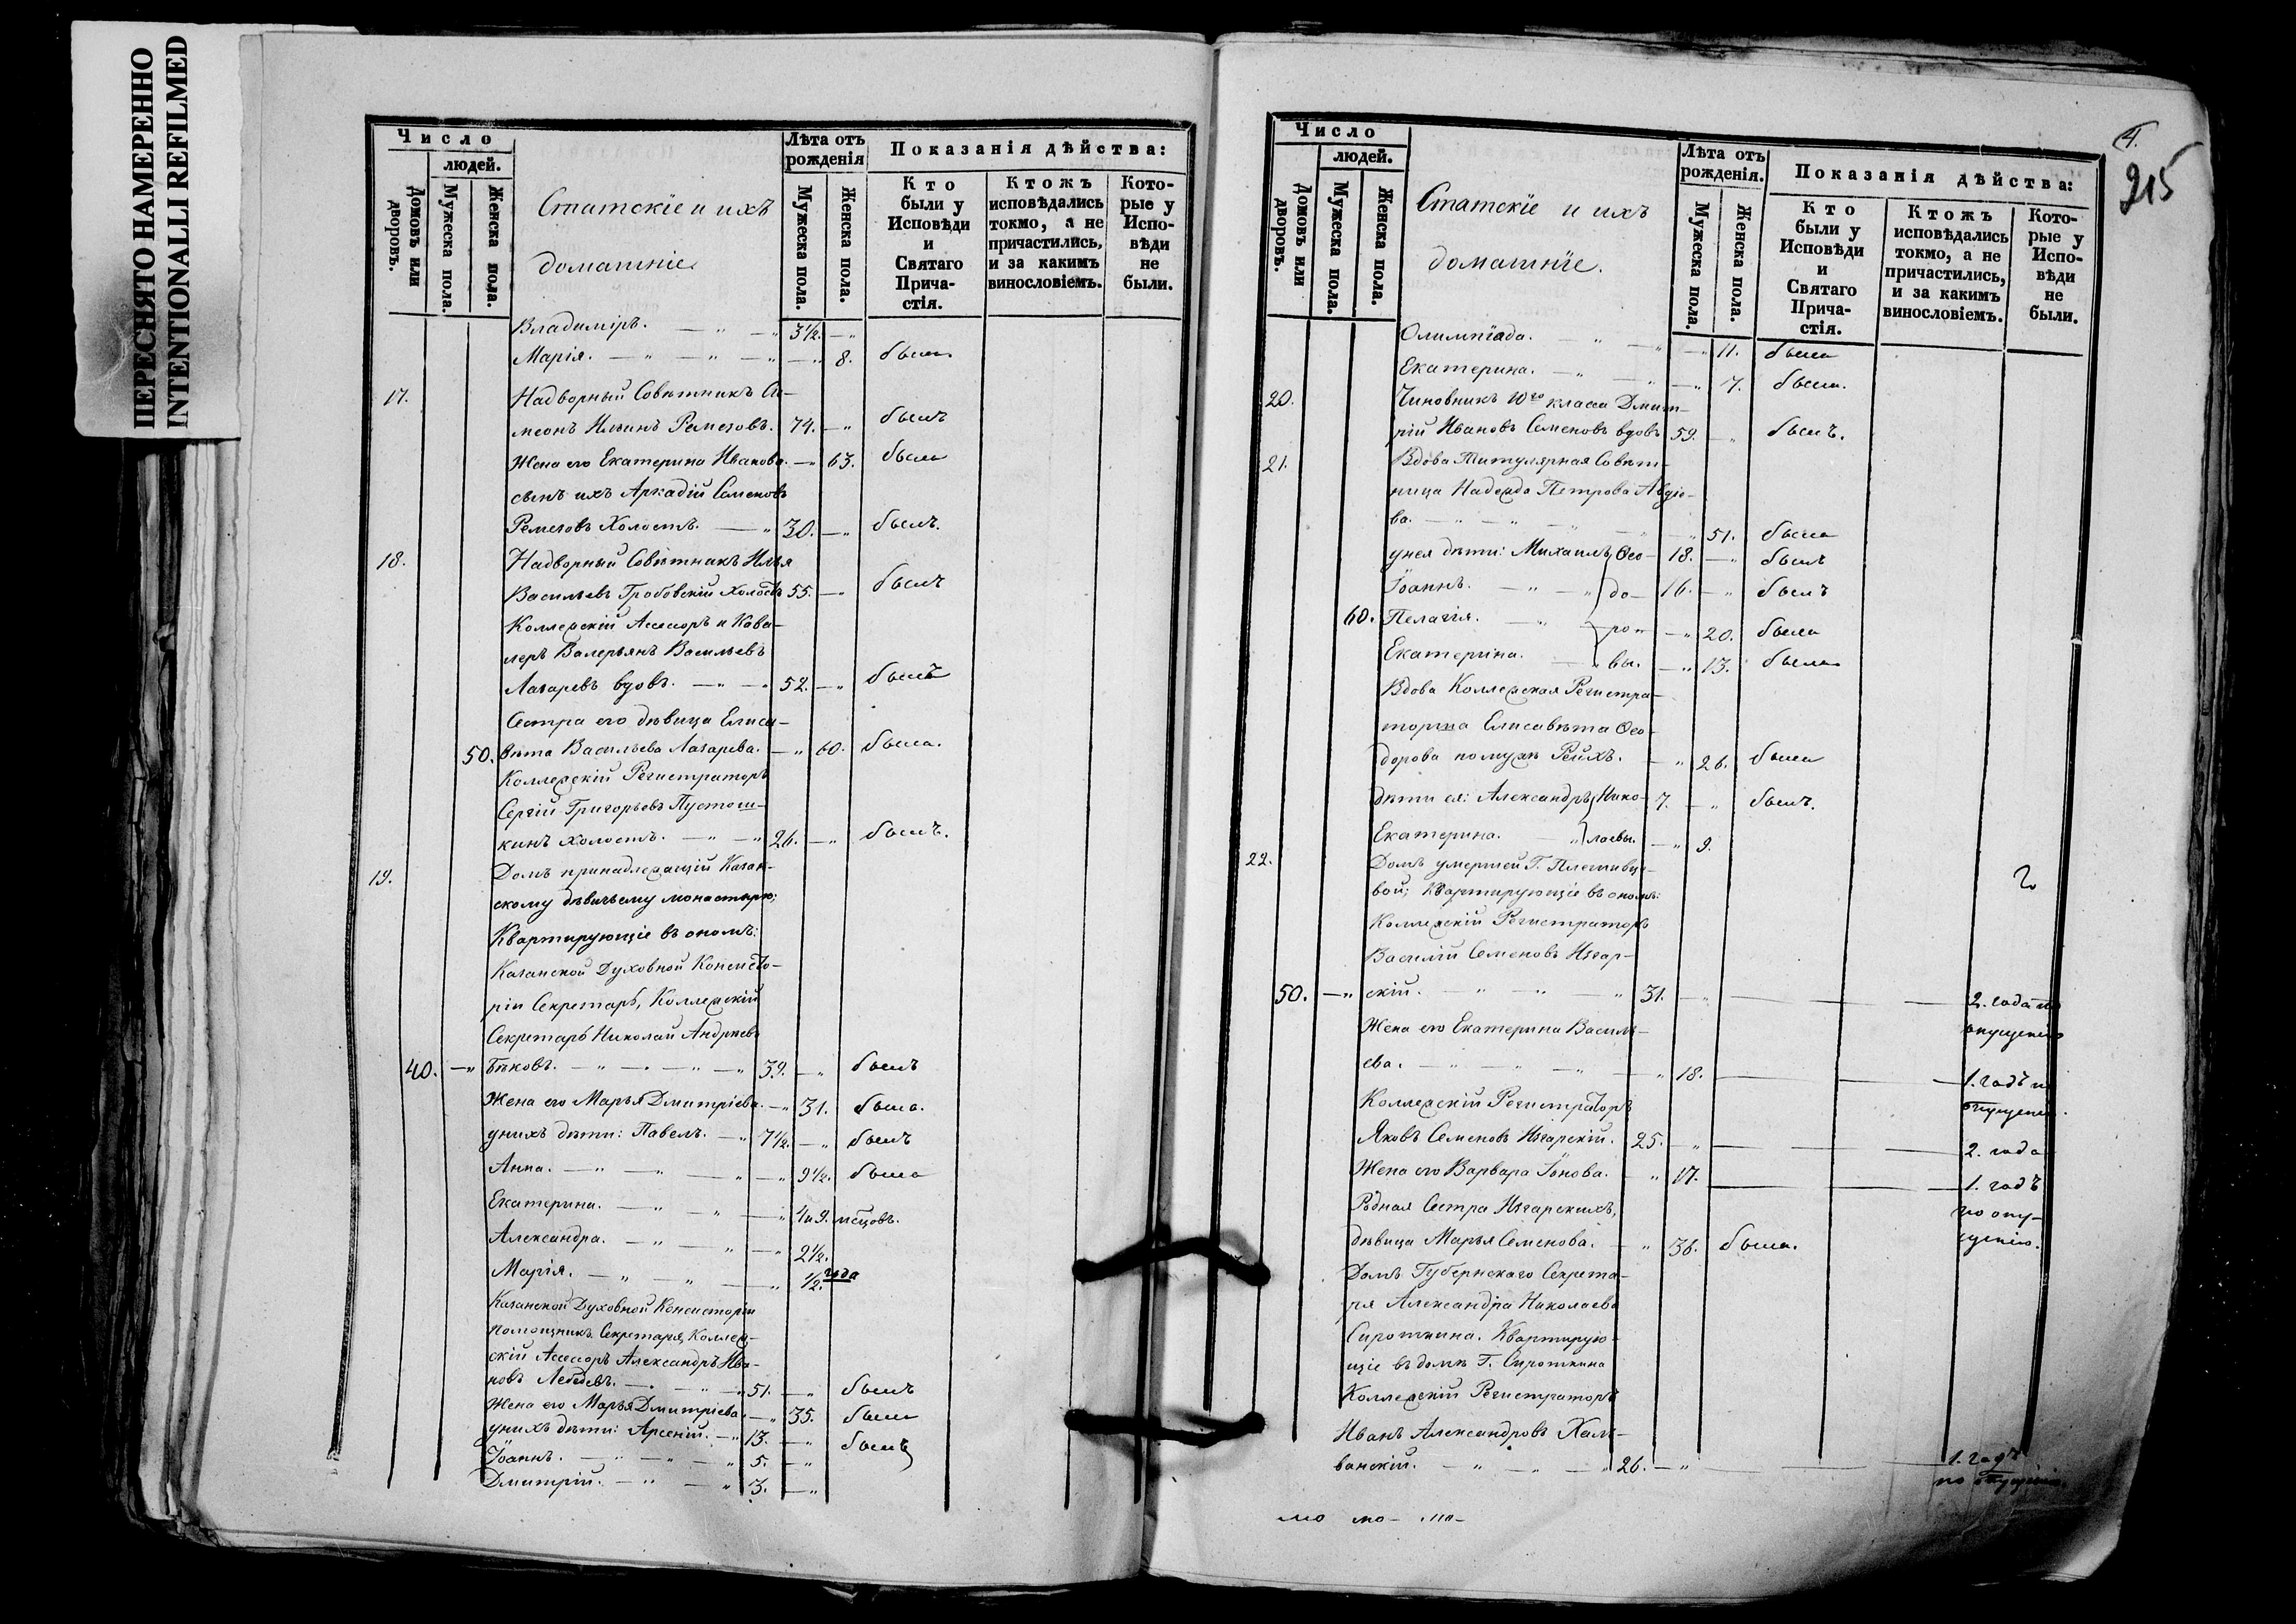 ПЕРЕСНЯТО НАМЕРЕННО
INTENTIONALLI REFILMED
Число
людей.
Домовъ или дворовъ.
Мужеска пола.
Женска пола.
Статскіе и ихъ
домашніе
Лѣта отъ рожденія
Мужеска пола.
Женска пола.
Показанія дѣйства:
Кто были у Исповѣди и Святаго Причастія.
Ктожъ исповѣдались токмо, а не причастились, и за какимъ винословіемъ.
Которые у Исповѣди не были.
Владиміръ. — " — " 3½. — "
Марія. — " — " — " — " 8. была
17. Надворный Совѣтникъ Си-
меонъ Ильинъ Ремезовъ. 74. — " былъ
Жена его Екатерина Иванова. — " 63. была
сынъ ихъ Аркадій Семеновъ
Ремезовъ холостъ. — " 30. — " былъ.
18. Надворный Совѣтникъ Илья
Васильевъ Гробовскій холостъ 55. — " былъ
Коллежскій Ассесоръ и Кава-
леръ Валерьянъ Васильевъ
Лазаревъ вдовъ. — " — " 52. — " былъ
Сестра его дѣвица Елиса-
50. вѣта Васильева Лазарева. — " 60. была.
Коллежскій Регистраторъ
Сергій Григорьевъ Пустош-
кинъ холостъ. — " — " 26. — " былъ.
19. Домъ принадлежащій Казан-
скому дѣвичьему монастырю;
Квартирующіе въ ономъ:
Казанской Духовной Консисто-
ріи Секретарь, Коллежскій
Секретарь Николай Андреевъ
40. — " Бѣковъ. — " — " — " 39. — " былъ
Жена его Марья Дмитріева. — " 31. была.
у нихъ дѣти: Павелъ. — " 7½. — " былъ
Анна. — " — " — " — " 9½. была
Екатерина. — " — " — " 4 и 9. мѣсцовъ.
Александра. — " — " — " 2½.
Марія. — " — " — " ½. года
Казанской Духовной Консисторіи
помощникъ Секретаря, Коллеж-
скій Ассесоръ Александръ Ива-
новъ Лебедевъ. — " — " 51. — " былъ
Жена его Марья Дмитріева. — " 35. была
у нихъ дѣти: Арсеній. — " 13. — " былъ
Іоаннъ. — " — " — " 5. — "
Дмитрій. — " — " 3. — "
4.
215
Число
людей.
Домовъ или дворовъ.
Мужеска пола.
Женска пола.
Статскіе и ихъ
домашніе.
Лѣта отъ рожденія.
Мужеска пола.
Женска пола.
Показанія дѣйства:
Кто были у Исповѣди и Святаго Причастія.
Ктожъ исповѣдались токмо, а не причастились, и за какимъ винословіемъ.
Которые у Исповѣди не были.
Олимпіада. — " — " — " 11. была
Екатерина. — " — " — " 7. была.
20. Чиновникъ 10го класса Дмит-
рій Ивановъ Семеновъ вдовъ 59. — " былъ.
21. Вдова Титулярная Совѣт-
ница Надежда Петрова
ва. — " — " — " 51. была
у нея дѣти: Михаилъ Ѳео- 18. — " былъ
Іоаннъ. — " — " до- 16. — " былъ
60. Пелагія. — " ро- — " 20. была
Екатерина. — " вы. — " 13. была
Вдова Коллежская Регистра-
торша Елисавѣта Ѳео-
дорова по мужѣ Рейхъ. — " 26. была
дѣти ея: Александръ Нико- 7. — " былъ.
Екатерина. " лаевы. — " 9.
22. Домъ умершей Г.
вой; Квартирующіе въ ономъ:
Коллежскій Регистраторъ
Василій Семеновъ Изгар-
50. — " скій. — " — " — " 31. — " 2. года по
опущенію
Жена его Екатерина Василь-
ева. — " — " — " — " 18. 1. годъ по
опущенію.
Коллежскій Регистраторъ
Яковъ Семеновъ Изгарскій. 25. — " 2. года
Жена его Варвара Іонова. — " 17. 1. годъ
по опу-
щенію.
Родная Сестра Изгарскихъ,
дѣвица Марья Семенова. — " 36. была.
Домъ Губернскаго Секрета-
ря Александра Николаева
Сироткина. Квартирую-
щіе въ домѣ Г. Сироткина
Коллежскій Регистраторъ
Иванъ Александровъ Хал-
ванскій. — " — " — " 26. — " 1. годъ
по опущенію.